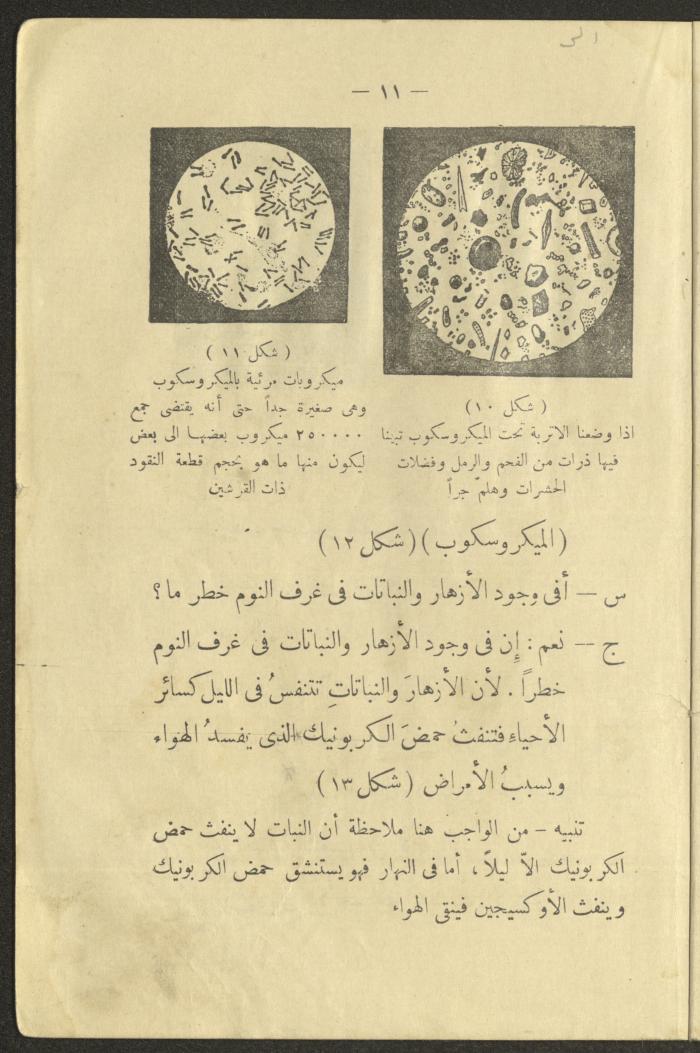 — ١١ —
( شكل ١٠ )
اذا وضعنا الاتربة تحت الميكروسكوب تبينا
فيها ذرات من الفحم والرمل وفضلات
الحشرات وهلمّ جراً
( شكل ١١ )
ميكروبات مرئية بالميكروسكوب
وهى صغيرة جداً حتى أنه يقتضى جمع
٢٥٠٠٠٠ ميكروب بعضها الى بعض
ليكون منها ما هو بحجم قطعة النقود
ذات القرشين
(الميكروسكوب) (شكل ١٢)
س — أفى وجود الأزهار والنباتات فى غرف النوم خطر ما ؟
ج — نعم : إن فى وجود الأزهار والنباتات فى غرف النوم
خطراً . لأن الأزهارَ والنباتاتِ تتنفسُ فى الليل كسائر
الأحياءِ فتنفثُ حمضَ الكربونيك الذى يفسدُ الهواء
ويسببُ الأمراض (شكل ١٣)
تنبيه — من الواجب هنا ملاحظة أن النبات لا ينفث حمض
الكربونيك الاّ ليلاً ، أما فى النهار فهو يستنشق حمض الكربونيك
وينفث الأوكسيجين فينقى الهواء